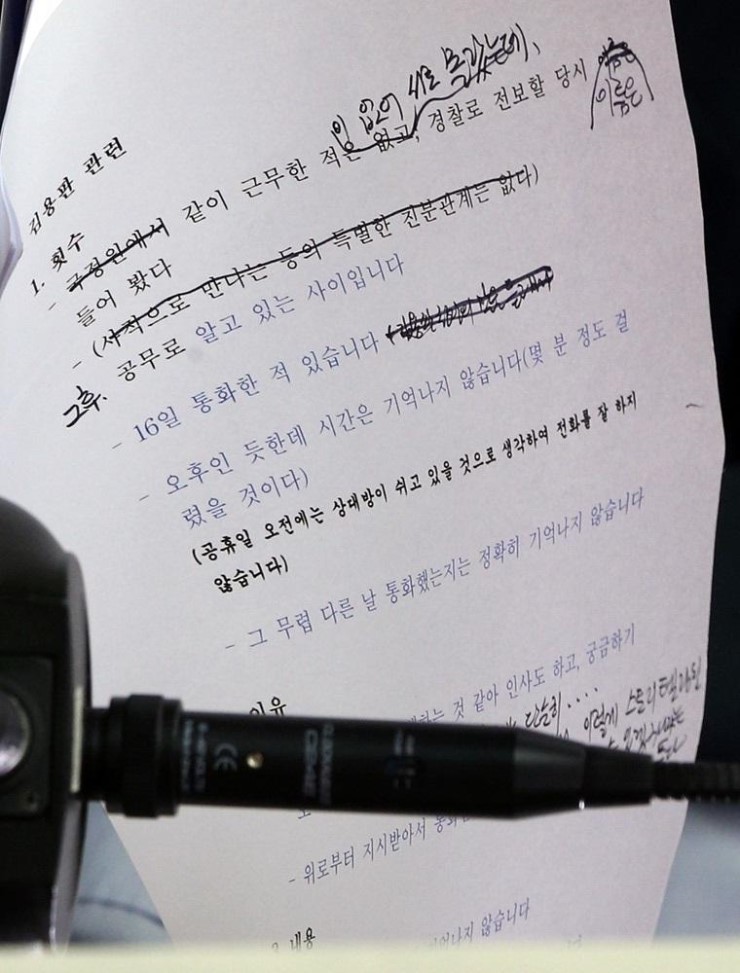 이 없어 서로 몰랐는데,
김용판 관련
1. 횟수
- 국정원에서 같이 근무한 적은 없고, 경찰로 전보할 당시 이름은
들어 봤다
- (사적으로 만나는 등의 특별한 친분관계는 없다)
그후. 공무로 알고 있는 사이입니다
- 16일 통화한 적 있습니다
- 오후인 듯한데 시간은 기억나지 않습니다(몇 분 정도 걸
렸을 것이다)
(공휴일 오전에는 상대방이 쉬고 있을 것으로 생각하여 전화를 잘 하지
않습니다)
- 그 무렵 다른 날 통화했는지는 정확히 기억나지 않습니다
이유
것 같아 인사도 하고, 궁금하기
단순히 ....
이렇게 스토리텔링된
- 위로부터 지시받아서 통화
내용
기억나지 않습니다
CE